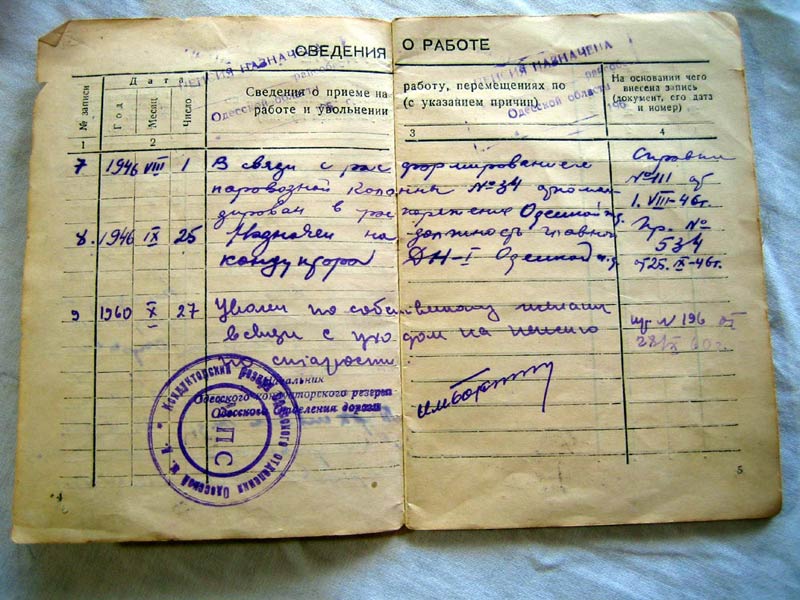 СВЕДЕНИЯ О РАБОТЕ
ПЕНСИЯ НАЗНАЧЕНА
Одесской области
ПЕНСИЯ НАЗНАЧЕНА
Одесской области
№ записи
Дата
Год
Месяц
Число
Сведения о приеме на работу, перемещениях по
работе и увольнении (с указанием причин)
На основании чего
внесена запись
(документ, его дата
и номер)
1 2 3 4
7 1946 VIII 1 В связи с расформированием Справка
паровозной Колонны № 34 откоман- №111 от
дирован в распоряжение Одесской ж.д. 1.VIII-46г.
8. 1946 IX 25 Назначен на должность главно Пр. №
кондуктора ДН-I Одесской ж.д 534
от 25.IX-46г.
9 1960 X 27 Уволен по собственному желани
в связи с уходом на пенсию пр. N 196 от
по старости. 28/X 60г.
Начальник
Одесского кондукторского резерва
Одесского отделения дороги
Кондукторский резерв Одесского отделения Одесской ж. д.
МПС
4
5